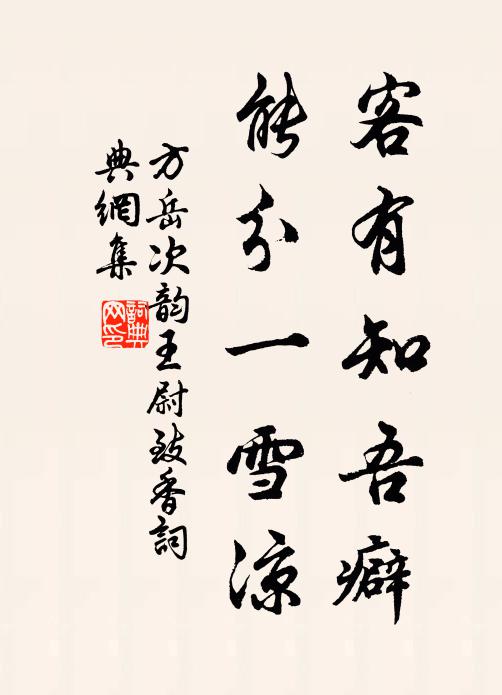 客有知吾癖
能分一雪涼
方岳次韵王尉致香詞
典網集
詞典
网印